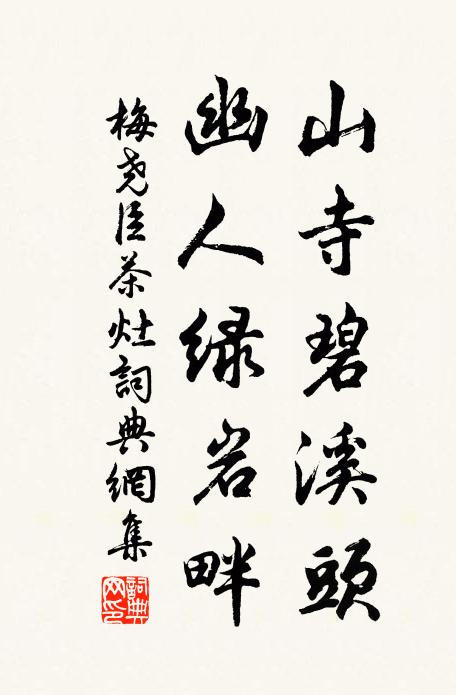 山寺碧溪頭
幽人緑岩畔
梅尧臣茶灶詞典網集
詞典网印